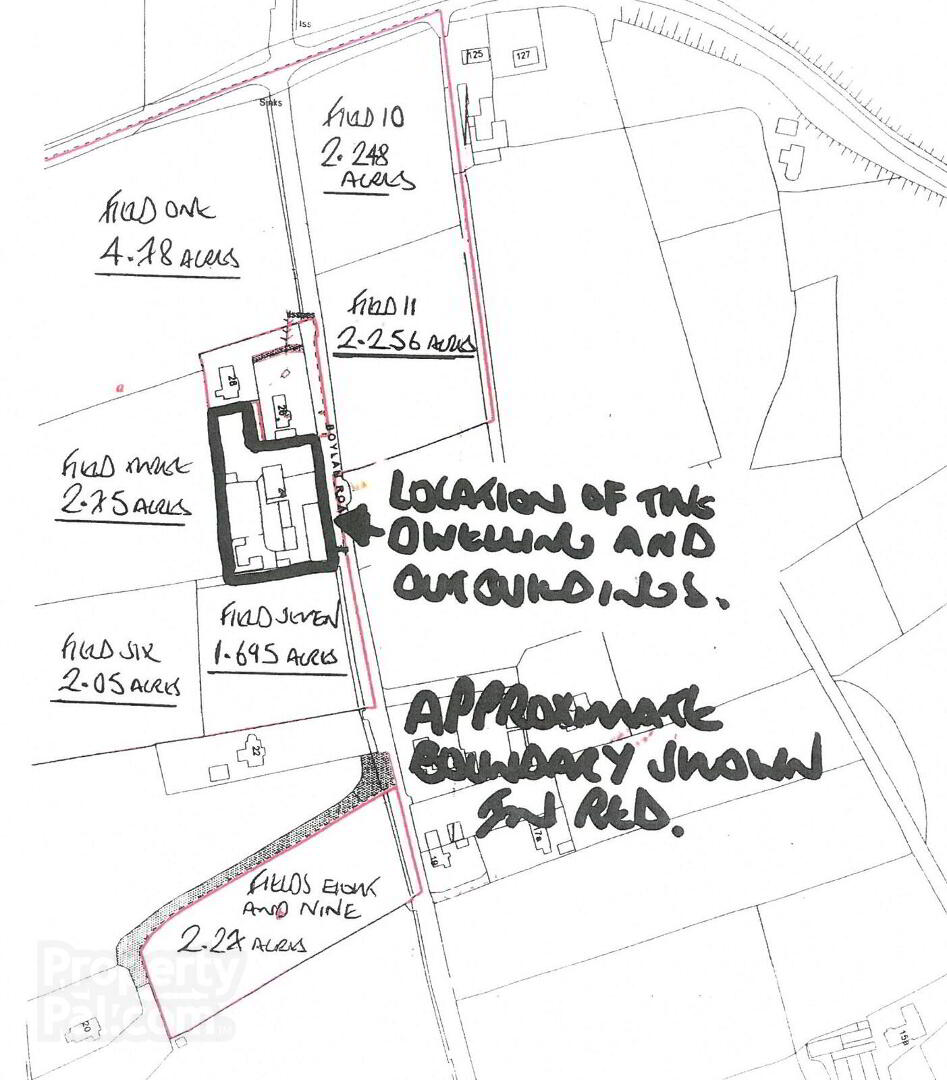 Iss
125
127
Sinks
FIELD 10
2.248
ACRES
FIELD ONE
4.78 ACRES
FIELD 11
2.256 ACRES
Issues
28
26
BOYLAN ROAD
FIELD THREE
2.75 ACRES
24
LOCATION OF THE
DWELLING AND
OUTBUILDINGS.
FIELD SIX
2.05 ACRES
FIELD SEVEN
1.695 ACRES
APPROXIMATE
BOUNDARY SHOWN
IN RED.
22
19
17a
FIELDS EIGHT
AND NINE
2.27 ACRES
PropertyPal.com
20
15a